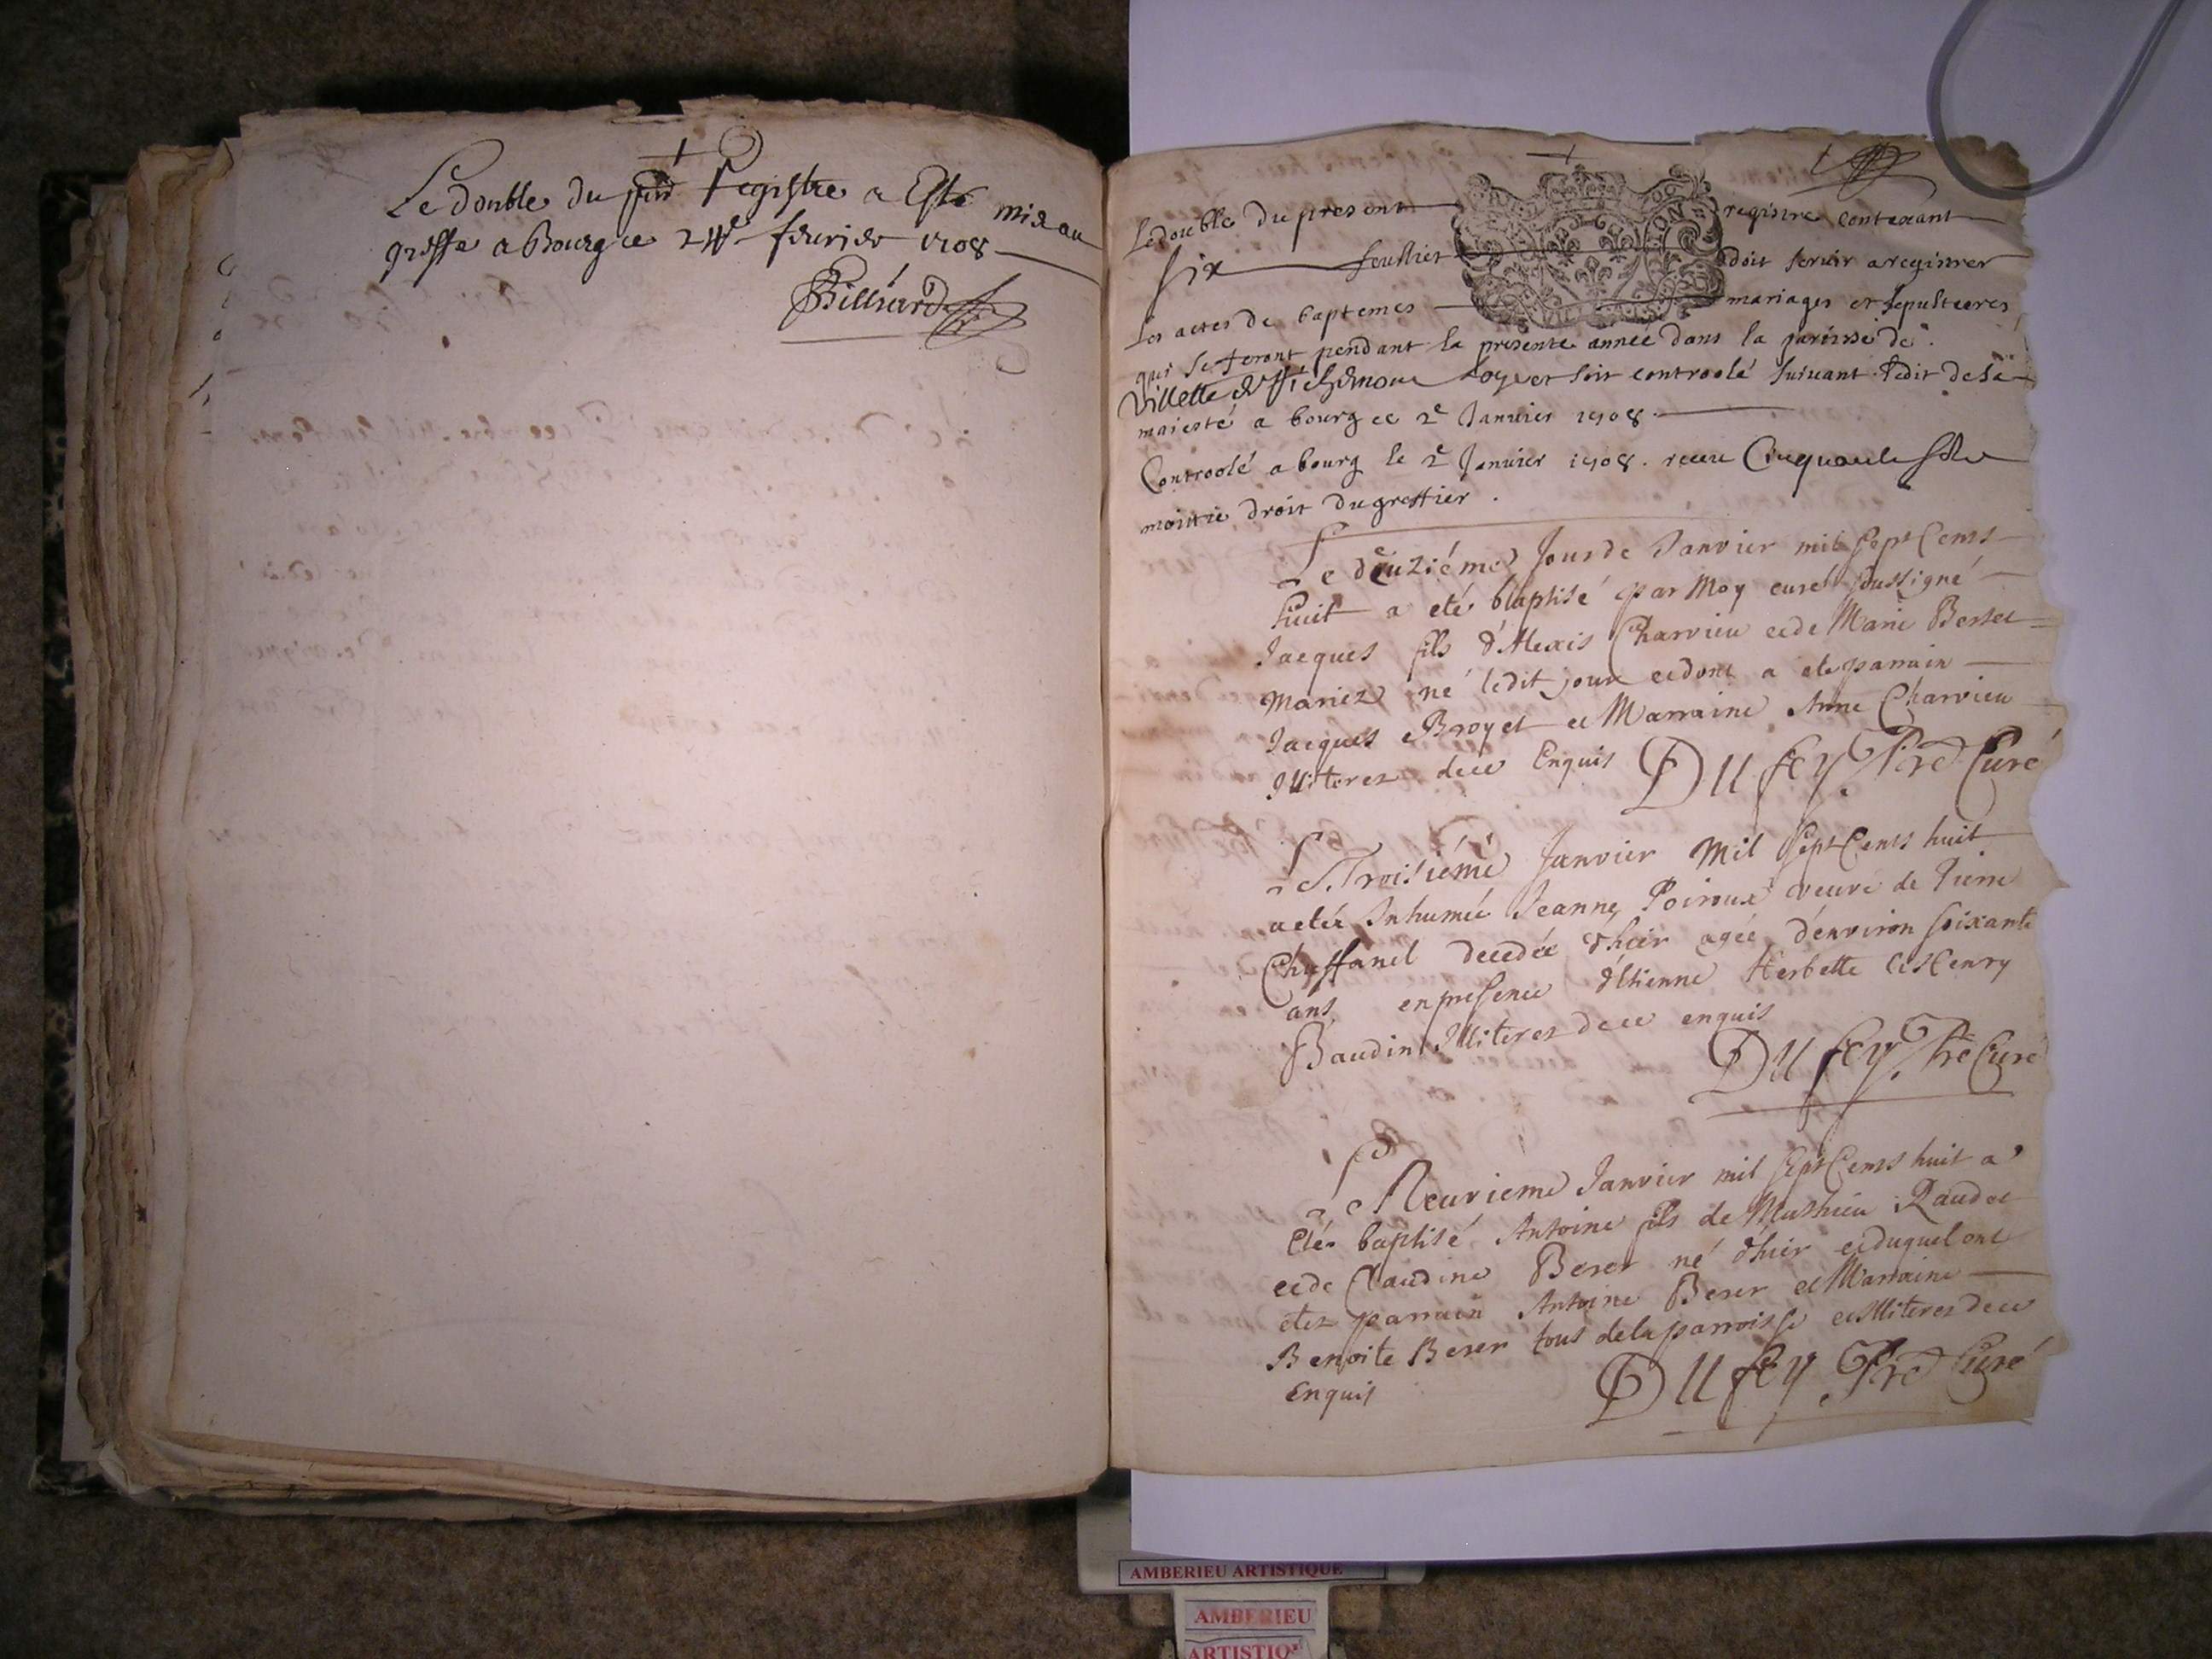 Le double du pnt Registre a Esté mis au
greffe a Bourg ce 24e feurier 1708
Billiard
Le double du present registre contenant
six feuillets doit seruir a registrer
les actes de baptemes mariages et sepultures
qui se feront pendant la presente année dans la parroisse de
Villette & Richemont et soit controolé suiuant l'edit de sa
maiesté a bourg ce 2e Januier 1708.
Controolé a bourg le 2e Januier 1708. receu Cinquante sols
moitié droit du greffier.
Le deuziéme Jour de Janvier mil sept Cents
huit a eté baptisé par Moy curé soussigné
Jacques fils d'Alexis Charvieu et de Marie Berset
Mariez né ledit jour et dont a eté parrain
Jacques Broyet et Marraine Anne Charvieu
Illiterez de ce Enquis Dufey Pre Curé
Le Troisiéme Janvier Mil Sept Cents huit
a eté Inhumée Jeanne Poiroux veuve de Pierre
Chaffanel decedée d'hier agée d'environ soixante
ans en presence d'Etienne Herbette et Henry
Baudin Illiterez de ce enquis
Dufey Pre Curé
Le Neuvieme Janvier mil sept Cents huit a
eté baptisé Antoine fils de Mathieu Raudet
et de Claudine Berer né d'hier et duquel ont
etez parrain Antoine Berer et Marraine
Benoite Berer tous de la parroisse et Illiterez de ce
Enquis Dufey Pre Curé
AMBERIEU ARTISTIQUE
AMBERIEU
ARTISTIQ